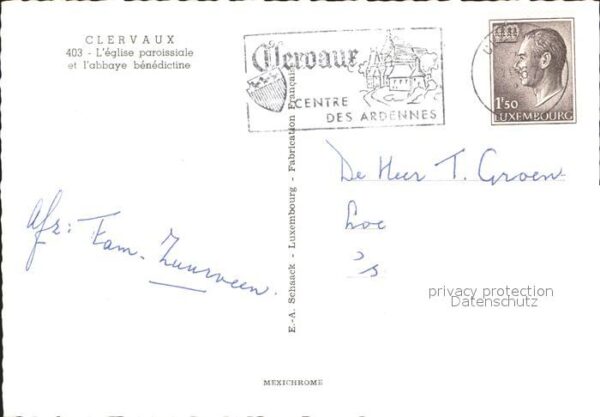 CLERVAUX
403 - L'église paroissiale
et l'abbaye bénédictine
Clervaux
CENTRE
DES ARDENNES
1F50
LUXEMBOURG
E.-A. Schaack - Luxembourg - Fabrication Française
De Heer T. Groen
Loc
's
privacy protection
Datenschutz
Afz: Fam. Zuurveen.
MEXICHROME